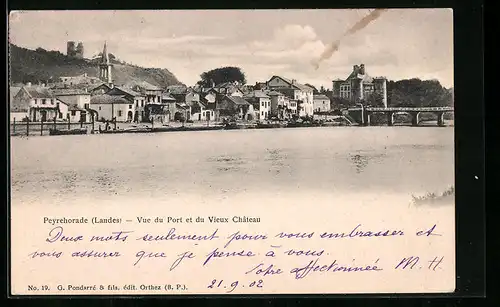 Peyrehorade (Landes) — Vue du Port et du Vieux Château
Deux mots seulement pour vous embrasser et
vous assurer que je pense à vous.
Votre affectionnée M. H
21.9.02
No. 19. G. Pondarré & fils, édit. Orthez (B. P.)